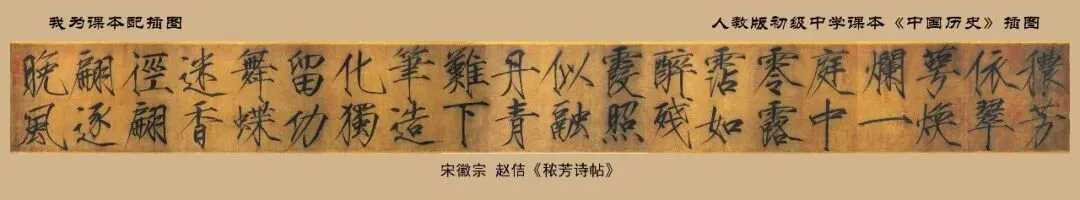 我为课本配插图
人教版初级中学课本《中国历史》插图
穠芳
依翠
萼煥
爛一
庭中
零露
霑如
醉殘
霞照
似融
丹青
難下
筆造
化獨
留功
舞蝶
迷香
徑翩
翩逐
晚風
宋徽宗 赵佶《秾芳诗帖》